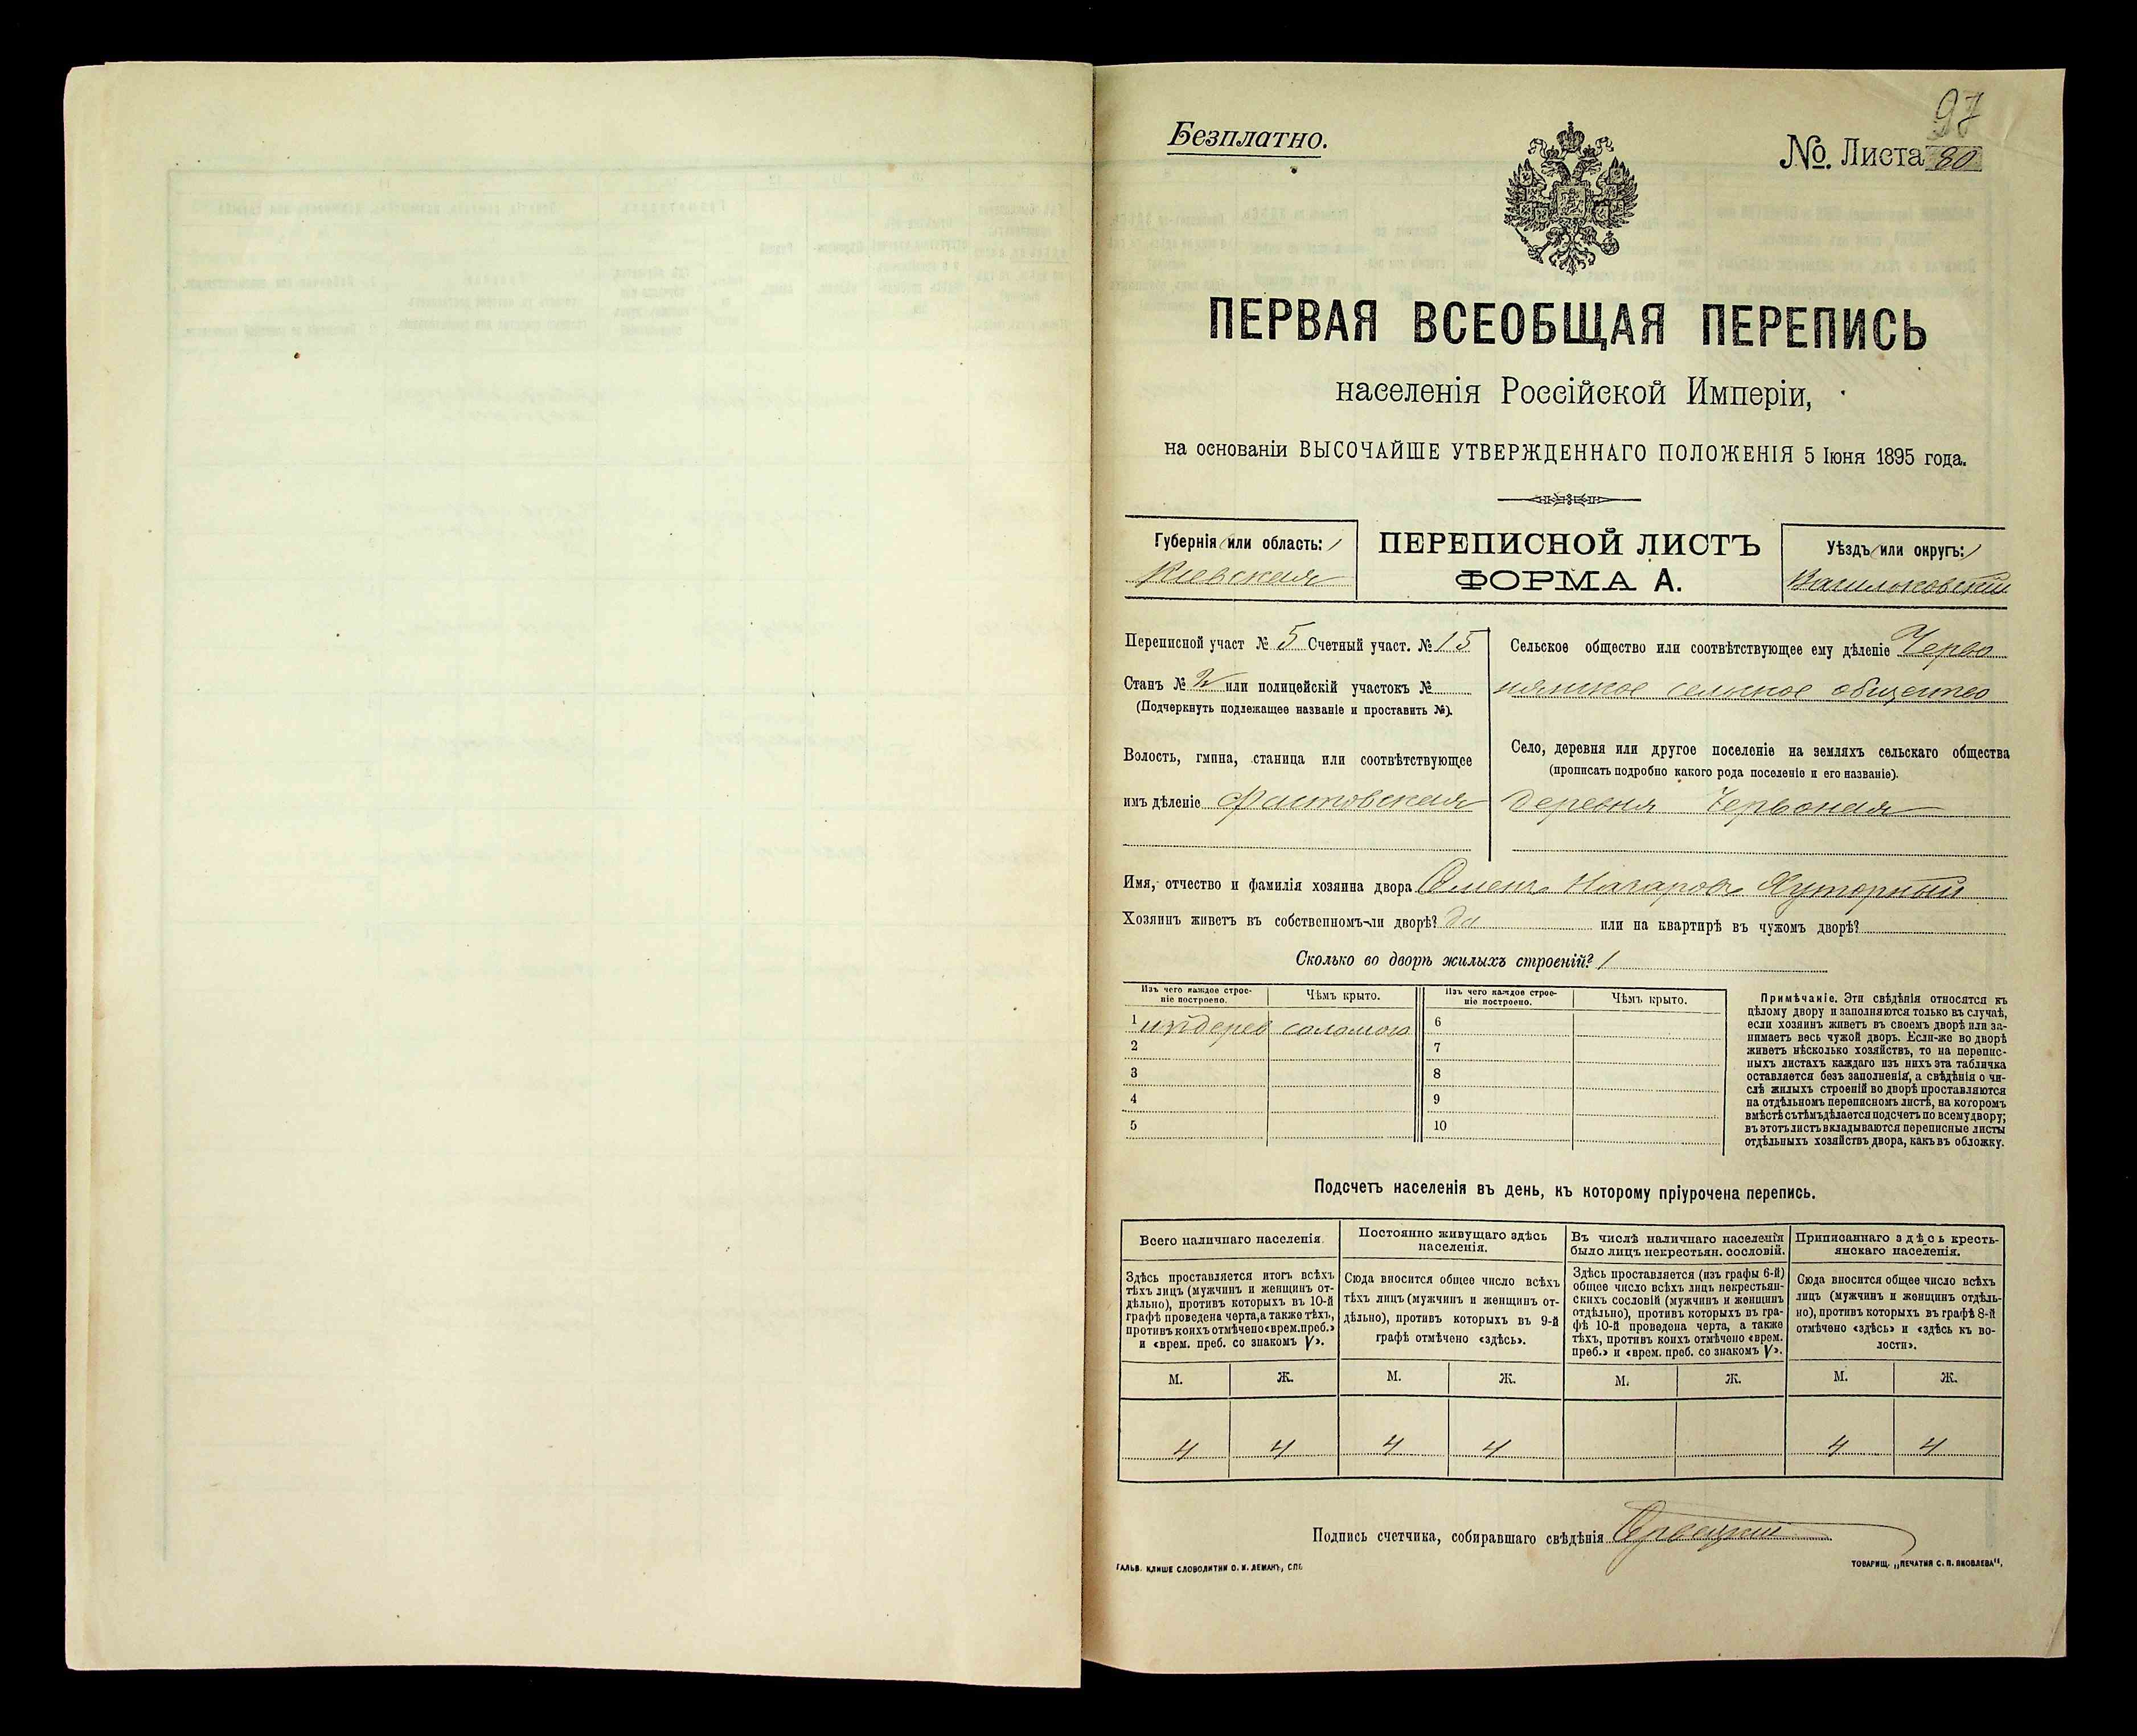 97
Безплатно.
№. Листа 80
ПЕРВАЯ ВСЕОБЩАЯ ПЕРЕПИСЬ
населенія Россійской Имперіи,
на основаніи ВЫСОЧАЙШЕ УТВЕРЖДЕННАГО ПОЛОЖЕНІЯ 5 Іюня 1895 года.
Губернія (или область:)
Кіевская
ПЕРЕПИСНОЙ ЛИСТЪ
ФОРМА А.
Уѣздъ (или округъ:)
Васильковскій
Переписной участ № 5 Счетный участ. № 15
Станъ № 2 или полицейскій участокъ №
(Подчеркнуть подлежащее названіе и проставить №).
Волость, гмина, станица или соотвѣтствующее
имъ дѣленіе Фастовская
Сельское общество или соотвѣтствующее ему дѣленіе Черво
нянское сельское общество
Село, деревня или другое поселеніе на земляхъ сельскаго общества
(прописать подробно какого рода поселеніе и его названіе).
деревня Червоная
Имя, отчество и фамилія хозяина двора Семенъ Назаровъ Хуторный
Хозяинъ живетъ въ собственномъ-ли дворѣ? да или на квартирѣ въ чужомъ дворѣ?
Сколько во дворѣ жилыхъ строеній? 1
Изъ чего каждое строе-
ніе построено.
Чѣмъ крыто.
Изъ чего каждое строе-
ніе построено.
Чѣмъ крыто.
1 изъ дерев соломою 6
2 7
3 8
4 9
5 10
Примѣчаніе. Эти свѣдѣнія относятся къ
цѣлому двору и заполняются только въ случаѣ,
если хозяинъ живетъ въ своемъ дворѣ или за-
нимаетъ весь чужой дворъ. Если-же во дворѣ
живетъ нѣсколько хозяйствъ, то на перепис-
ныхъ листахъ каждаго изъ нихъ эта табличка
оставляется безъ заполненія, а свѣдѣнія о чи-
слѣ жилыхъ строеній во дворѣ проставляются
на отдѣльномъ переписномъ листѣ, на которомъ
вмѣстѣ съ тѣмъ дѣлается подсчетъ по всему двору;
въ этотъ листъ вкладываются переписные листы
отдѣльныхъ хозяйствъ двора, какъ въ обложку.
Подсчетъ населенія въ день, къ которому пріурочена перепись.
Всего наличнаго населенія.
Здѣсь проставляется итогъ всѣхъ
тѣхъ лицъ (мужчинъ и женщинъ от-
дѣльно), противъ которыхъ въ 10-й
графѣ проведена черта, а также тѣхъ,
противъ коихъ отмѣчено «врем. преб.»
и «врем. преб. со знакомъ V».
Постоянно живущаго здѣсь
населенія.
Сюда вносится общее число всѣхъ
тѣхъ лицъ (мужчинъ и женщинъ от-
дѣльно), противъ которыхъ въ 9-й
графѣ отмѣчено «здѣсь».
Въ числѣ наличнаго населенія
было лицъ некрестьян. сословій.
Здѣсь проставляется (изъ графы 6-й)
общее число всѣхъ лицъ некрестьян-
скихъ сословій (мужчинъ и женщинъ
отдѣльно), противъ которыхъ въ гра-
фѣ 10-й проведена черта, а также
тѣхъ, противъ коихъ отмѣчено «врем.
преб.» и «врем. преб. со знакомъ V».
Приписаннаго здѣсь кресть-
янскаго населенія.
Сюда вносится общее число всѣхъ
лицъ (мужчинъ и женщинъ отдѣль-
но), противъ которыхъ въ графѣ 8-й
отмѣчено «здѣсь» и «здѣсь къ во-
лости».
М. Ж. М. Ж. М. Ж. М. Ж.
4 4 4 4 4 4
Подпись счетчика, собиравшаго свѣдѣнія
ГАЛЬВ. КЛИШЕ СЛОВОЛИТНИ О. И. ЛЕМАНЪ, СПБ.
ТОВАРИЩ. „ПЕЧАТНЯ С. П. ЯКОВЛЕВА".